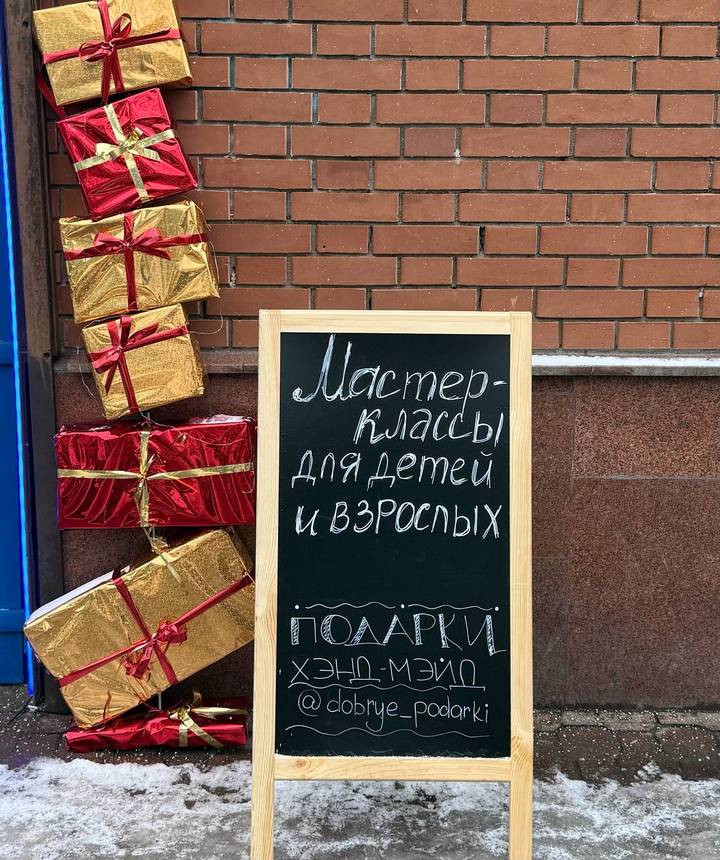 Мастер-
классы
для детей
и взрослых
ПОДАРКИ
ХЭНД-МЭЙД
@dobrye_podarki